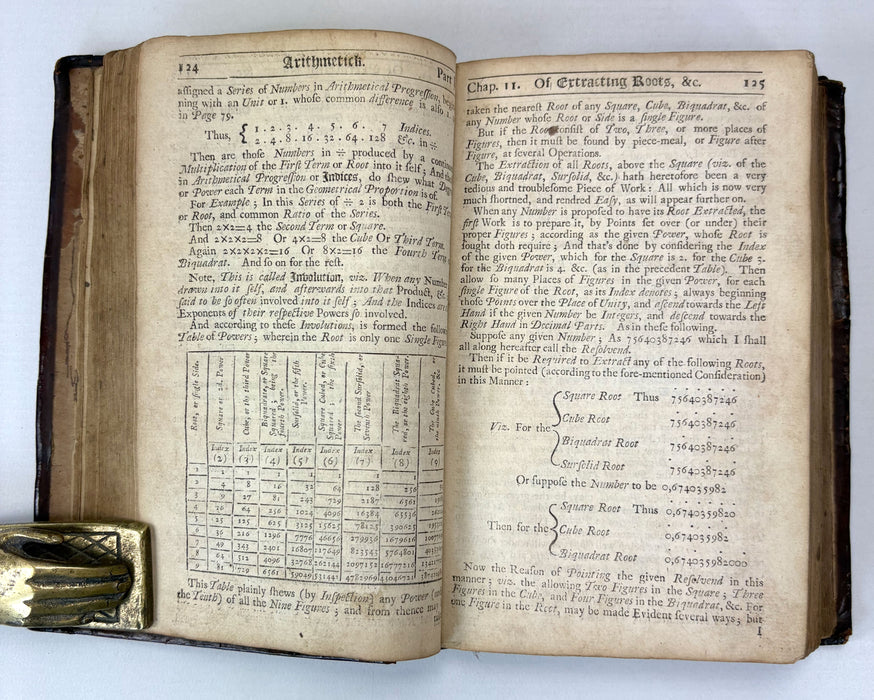 124 Arithmetick. Part
assigned a Series of Numbers in Arithmetical Progression, begin-
ning with an Unit or 1. whose common difference is also 1.
in Page 79.
Thus, { 1 . 2 . 3 . 4 . 5 . 6 . 7 Indices.
2 . 4 . 8 . 16 . 32 . 64 . 128 &c. in ∺
Then are those Numbers in ∺ produced by a
Multiplication of the First Term or Root into it self; And
in Arithmetical Progression or Indices, do shew what
or Power each Term in the Geometrical Proportion is of.
For Example; In this Series of ∺ 2 is both the First
or Root, and common Ratio of the Series.
Then 2×2=4 the Second Term or Square.
And 2×2×2=8 Or 4×2=8 the Cube Or Third Term.
Again 2×2×2×2=16 Or 8×2=16 the Fourth
Biquadrat. And so on for the rest.
Note, This is called Involution, viz. When any Number
drawn into it self, and afterwards into that Product, &c.
said to be so often involved into it self; And the Indices are
Exponents of their respective Powers so involved.
And according to these Involutions, is formed the
Table of Powers; wherein the Root is only one Single
Root, or single Side. | Square or 2d. Power | Cube, or the third Power | Biquadrate, or Square Squared; being the fourth Power. | Sursolid, or the fifth Power. | Square Cubed, or Cube Squared; the sixth Power | The second Sursolid, or Seventh Power | The Biquadrat Squared, or the eighth Power. | The Cube Cubed, or the ninth Power, &c.
Index (2) | Index (3) | Index (4) | Index (5) | Index (6) | Index (7) | Index (8) | Index (9)
1 1 1 1 1 1
2 4 8 16 32 64 128 256
3 9 27 81 243 729 2187 6561
4 16 64 256 1024 4096 16384 65536
5 25 125 625 3125 15625 78125 390625
6 36 216 1296 7776 46656 279936 1679616
7 49 343 2401 16807 117649 823543 5764801
8 64 512 4096 32768 262144 2097152 16777216
9 81 729 6561 59049 531441 4782969 43046721
This Table plainly shews (by Inspection) any Power
the Tenth) of all the Nine Figures; and from thence may
Chap. 11. Of Extracting Roots, &c. 125
taken the nearest Root of any Square, Cube, Biquadrat, &c. of
any Number whose Root or Side is a single Figure.
But if the Root consist of Two, Three, or more places of
Figures, then it must be found by piece-meal, or Figure after
Figure, at several Operations.
The Extraction of all Roots, above the Square (viz. of the
Cube, Biquadrat, Sursolid, &c.) hath heretofore been a very
tedious and troublesome Piece of Work: All which is now very
much shortned, and rendred Easy, as will appear further on.
When any Number is proposed to have its Root Extracted, the
first Work is to prepare it, by Points set over (or under) their
proper Figures; according as the given Power, whose Root is
sought doth require; And that's done by considering the Index
of the given Power, which for the Square is 2. for the Cube 3.
for the Biquadrat is 4. &c. (as in the precedent Table). Then
allow so many Places of Figures in the given Power, for each
single Figure of the Root, as its Index denotes; always beginning
those Points over the Place of Unity, and ascend towards the Left
Hand if the given Number be Integers, and descend towards the
Right Hand in Decimal Parts. As in these following.
Suppose any given Number; As 75640387246 which I shall
all along hereafter call the Resolvend.
Then if it be Required to Extract any of the following Roots,
it must be pointed (according to the fore-mentioned Consideration)
in this Manner:
Viz. For the { Square Root Thus 75640387246
Cube Root 75640387246
Biquadrat Root 75640387246
Sursolid Root 75640387246
Or suppose the Number to be 0,674035982
Then for the { Square Root Thus 0,6740359820
Cube Root 0,674035982
Biquadrat Root 0,674035982000
Now the Reason of Pointing the given Resolvend in this
manner; viz. the allowing Two Figures in the Square; Three
Figures in the Cube, and Four Figures in the Biquadrat, &c. For
one Figure in the Root, may be made Evident several ways; but
I